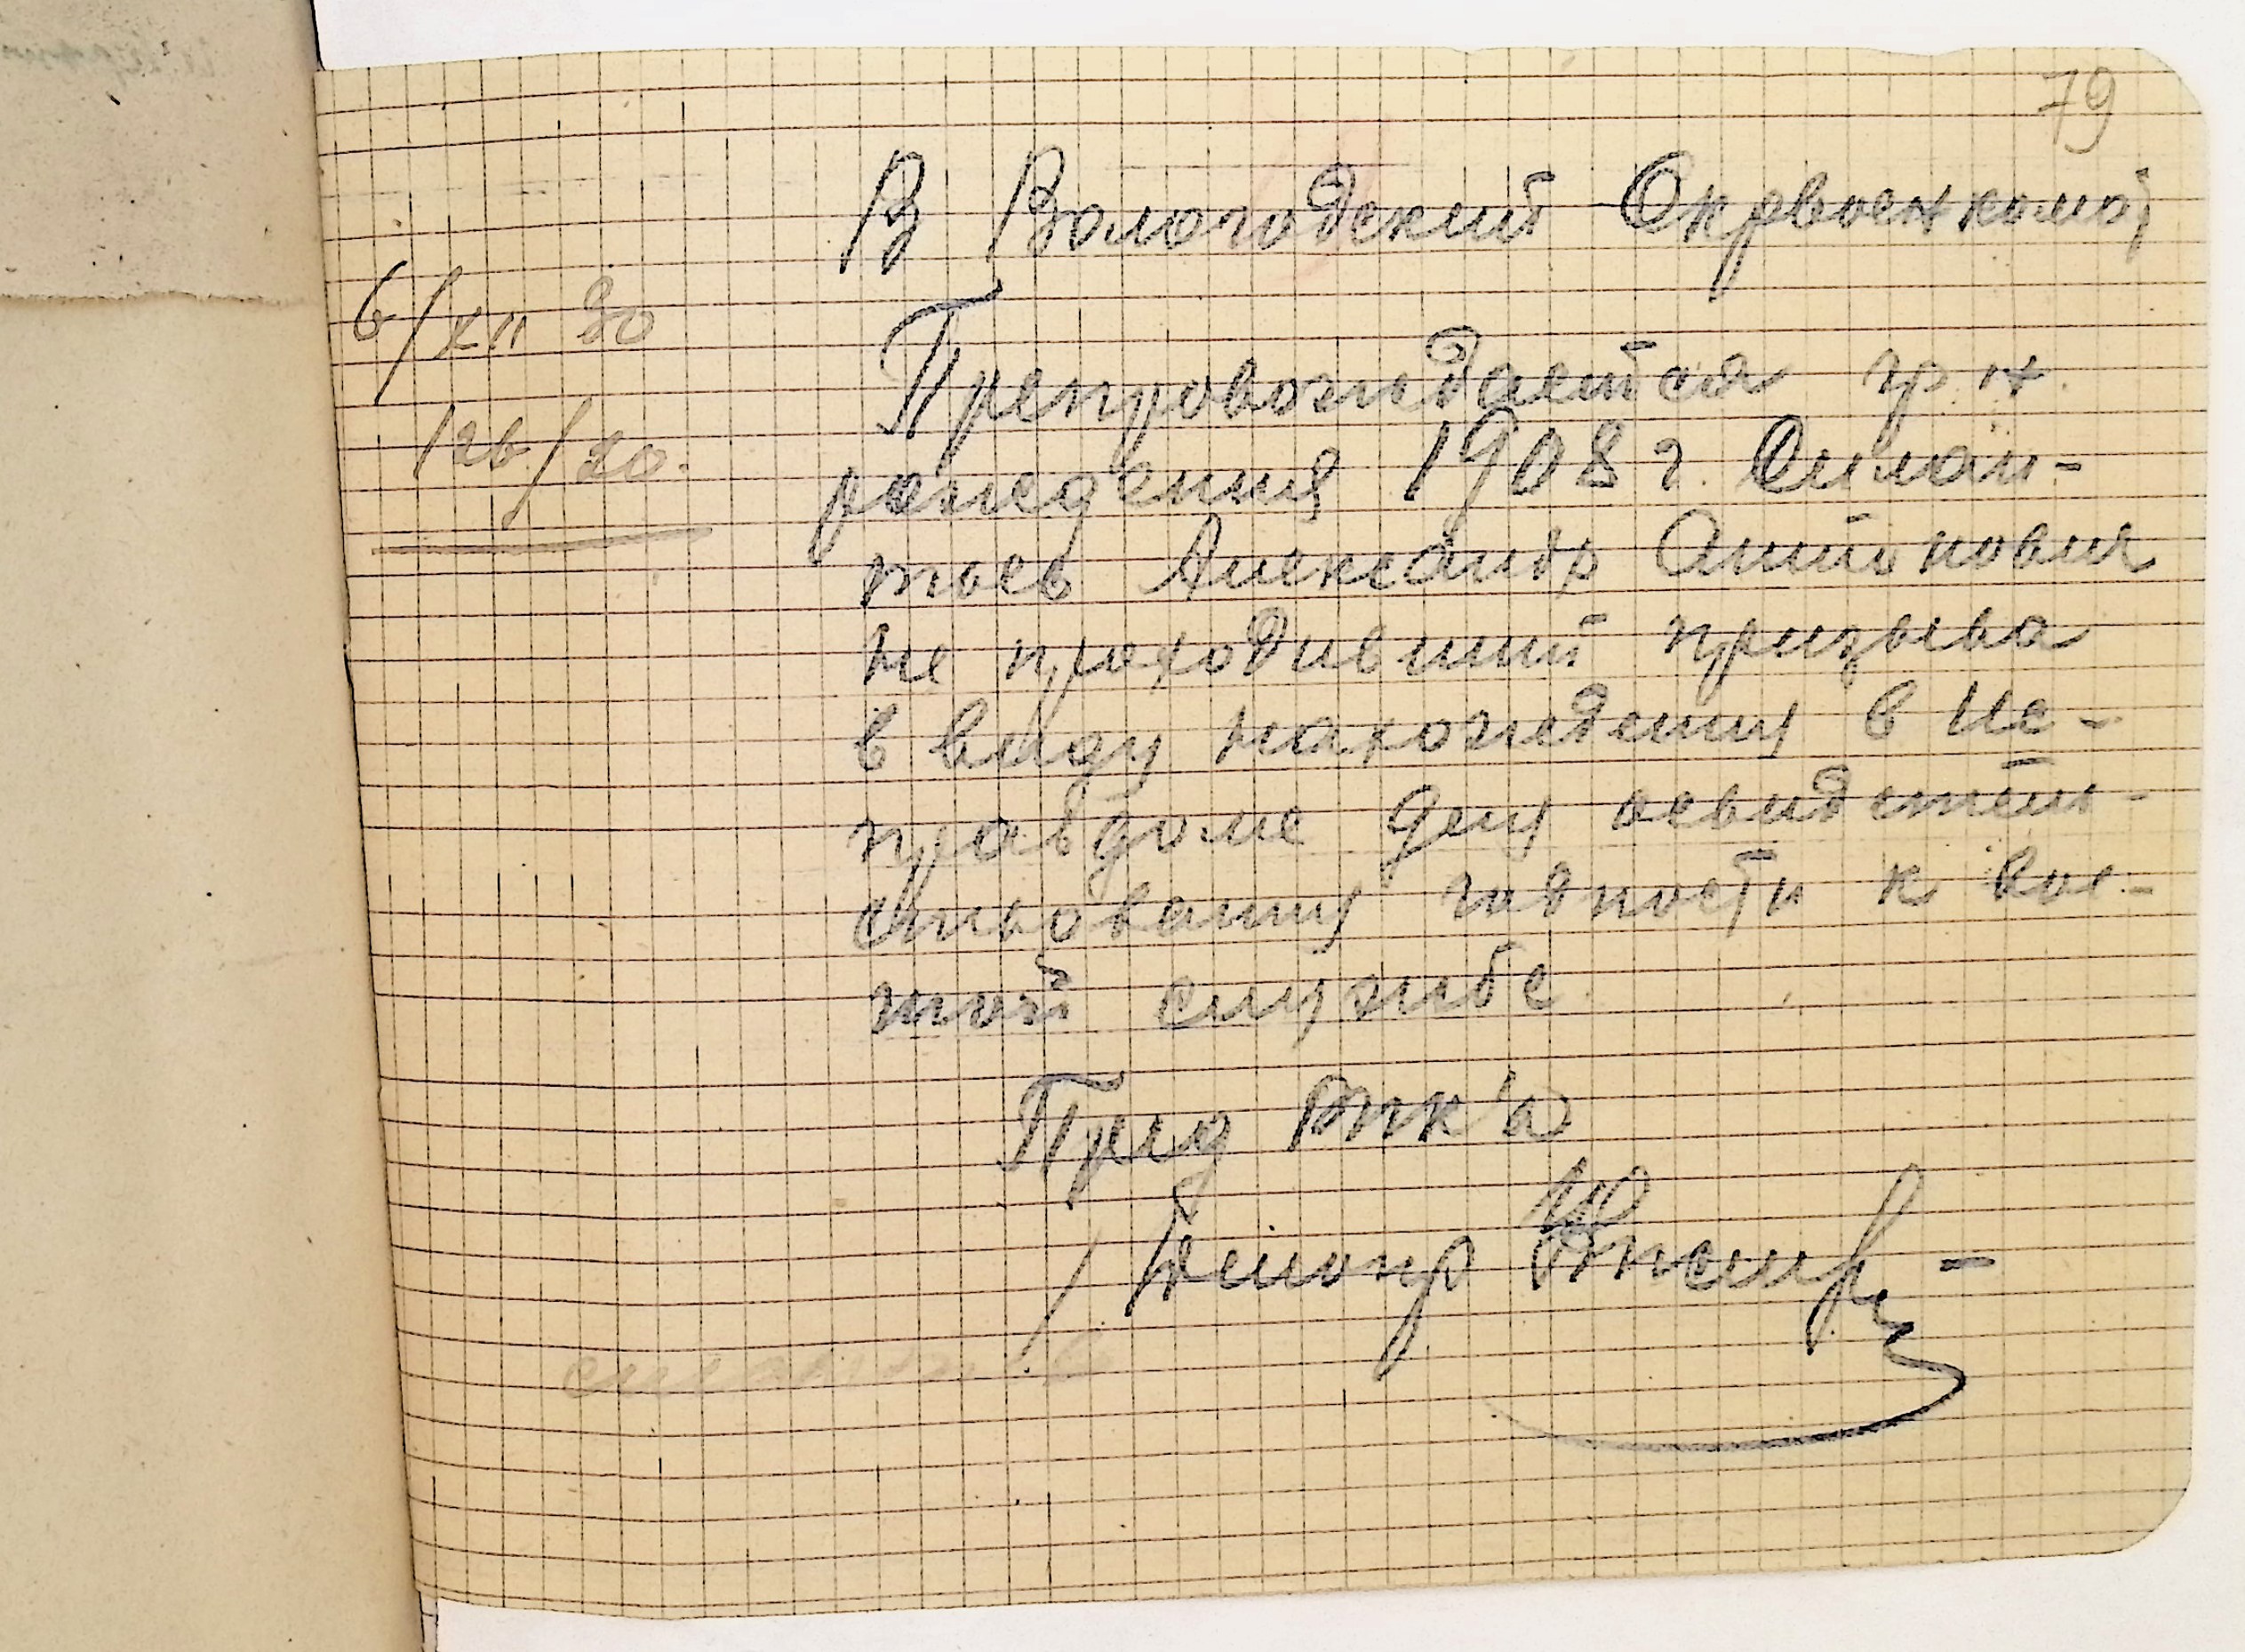 79
В Вологодский Окрвоенкомат
6/XII 30
Препровождается гр-н
126/30.
рождения 1908 г. Силан-
тьев Александр Антонович
не проходивший призыва
в виду нахождения в Ис-
правдоме для освидетель-
ствования годности к вое-
ной службе
Пред